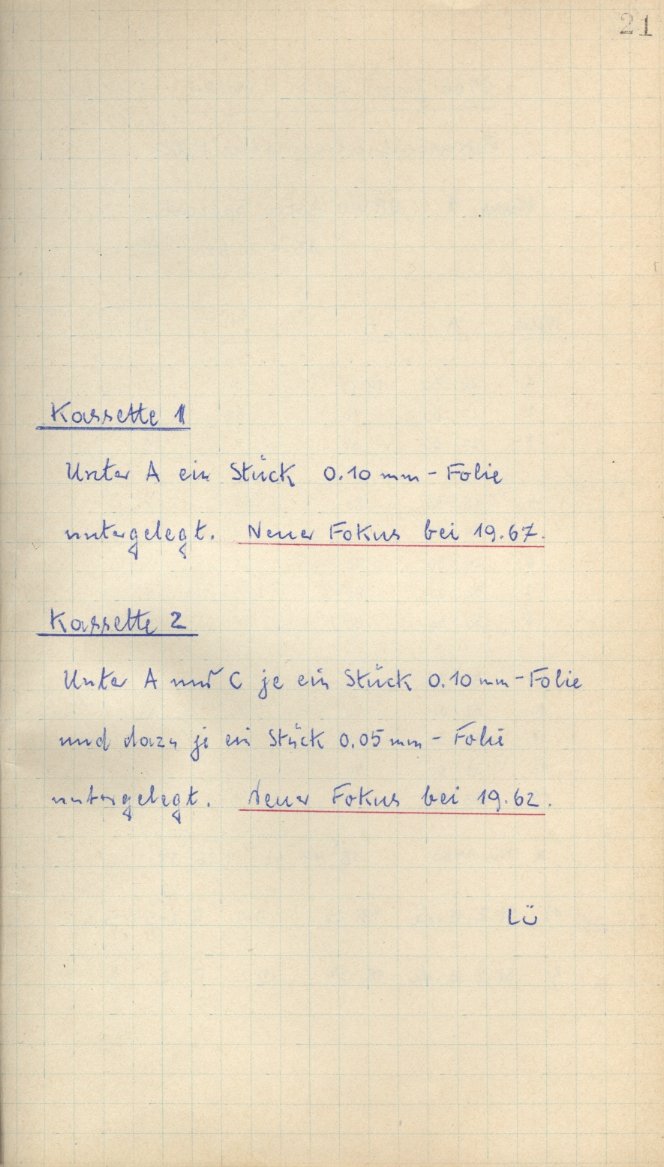 21
Kassette 1
Unter A ein Stück 0.10 mm - Folie
untergelegt. Neuer Fokus bei 19.67.
Kassette 2
Unter A und C je ein Stück 0.10 mm - Folie
und dazu je ein Stück 0.05 mm - Folie
untergelegt. Neuer Fokus bei 19.62.
LÜ